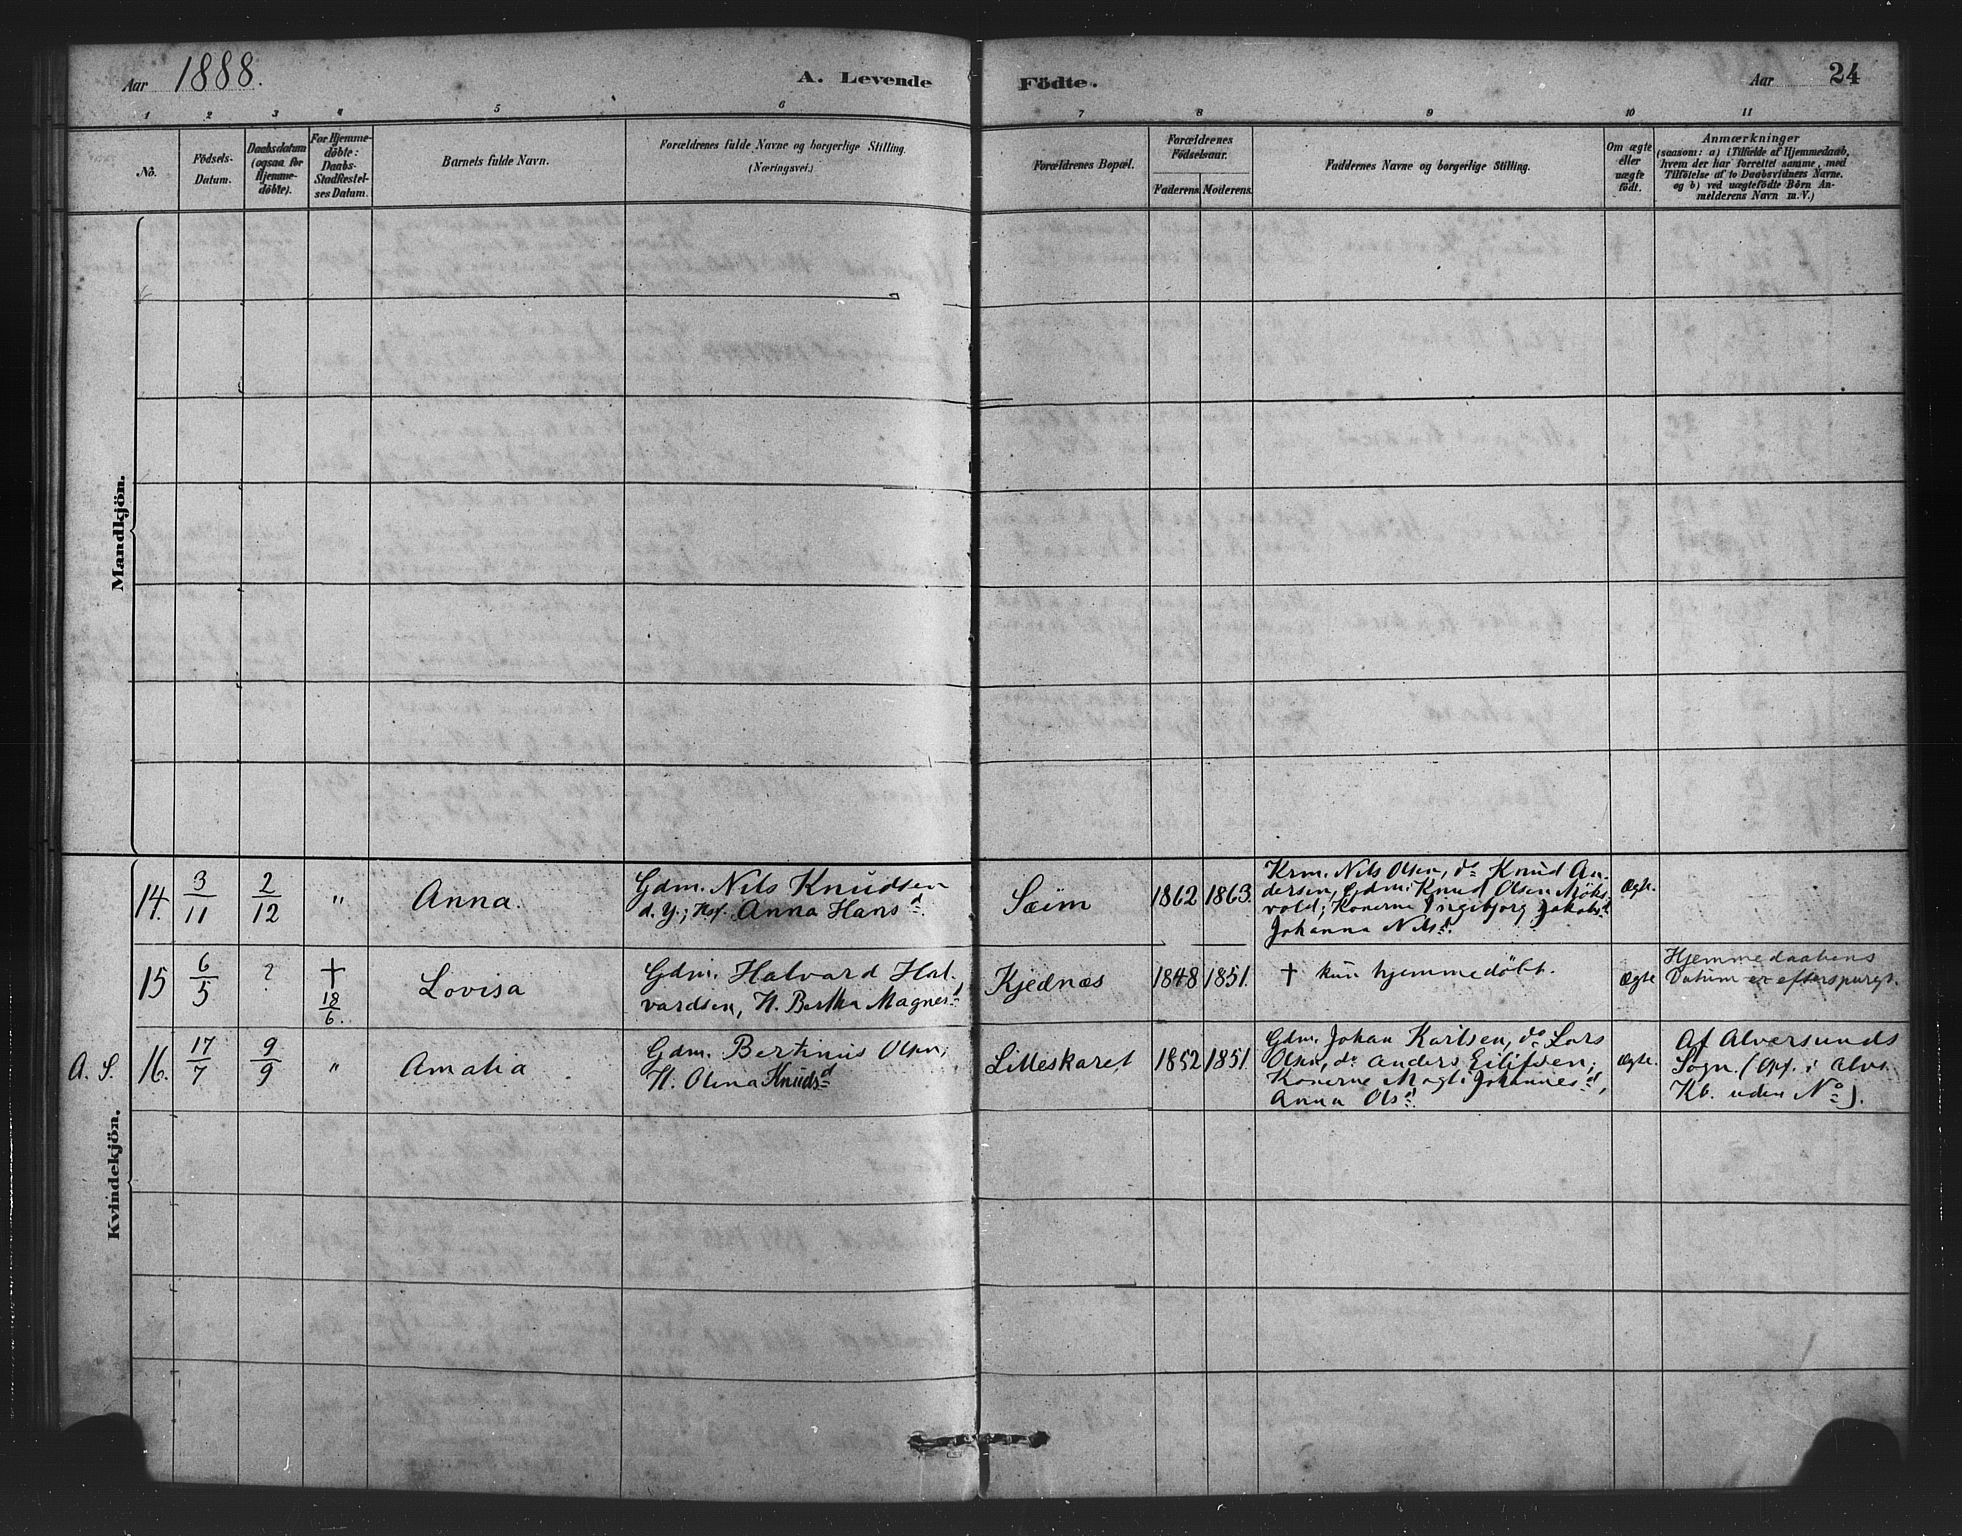 Aar 1888. A. Levende Födte. Aar 24
1 2 3 4 5 6 7 8 9 10 11
No.
Födsels-
Datum.
Daabsdatum
(ogsaa for
Hjemme-
döbte).
For Hjemme-
döbte:
Daabs-
Stadfæstel-
ses Datum.
Barnets fulde Navn.
Forældrenes fulde Navne og borgerlige Stilling.
(Næringsvei.)
Forældrenes Bopæl.
Forældrenes
Födselsaar.
Faderens. Moderens.
Faddernes Navne og borgerlige Stilling.
Om ægte
eller
uægte
födt.
Anmærkninger
(saasom: a) i Tilfælde af Hjemmedaab,
hvem der har forrettet samme, med
Tilföielse af to Daabsvidners Navne.
og b) ved uægtefödte Börn An-
melderens Navn m.V.)
Mandkjön.
Kvindekjön.
14. 3/11 2/12 " Anna.
Gdm. Nils Knudsen
d. y.; Hsf. Anna Hansd.
Sæim 1862 1863.
Krm. Nils Olsen, do Knud An-
dersen, Gdm. Knud Olsen Mjøks
vold; Konerne Ingebjorg Jakobsd
Johanna Nilsd.
Ægte.
15 6/5 ? † 18/6. Lovisa
Gdm. Halvard Hal-
vardsen, H. Bertha Magnesd
Kjednæs 1848 1851.
† kun hjemmedöbt.
Ægte
Hjemmedaabens
Datum er efterspurgt.
A. S. 16. 17/7 9/9 " Amalia
Gdm. Bertinus Olsen,
H. Olina Knudsd
Lilleskaret 1852 1851
Gdm. Johan Karlsen, do Lars
Olsen, do Anders Eilifsen;
Konerne Magli Johannesd,
Anna Olsd.
Ægte.
Af Alversunds
Sogn. (Opf. i Alvs.
Kb. uden No).